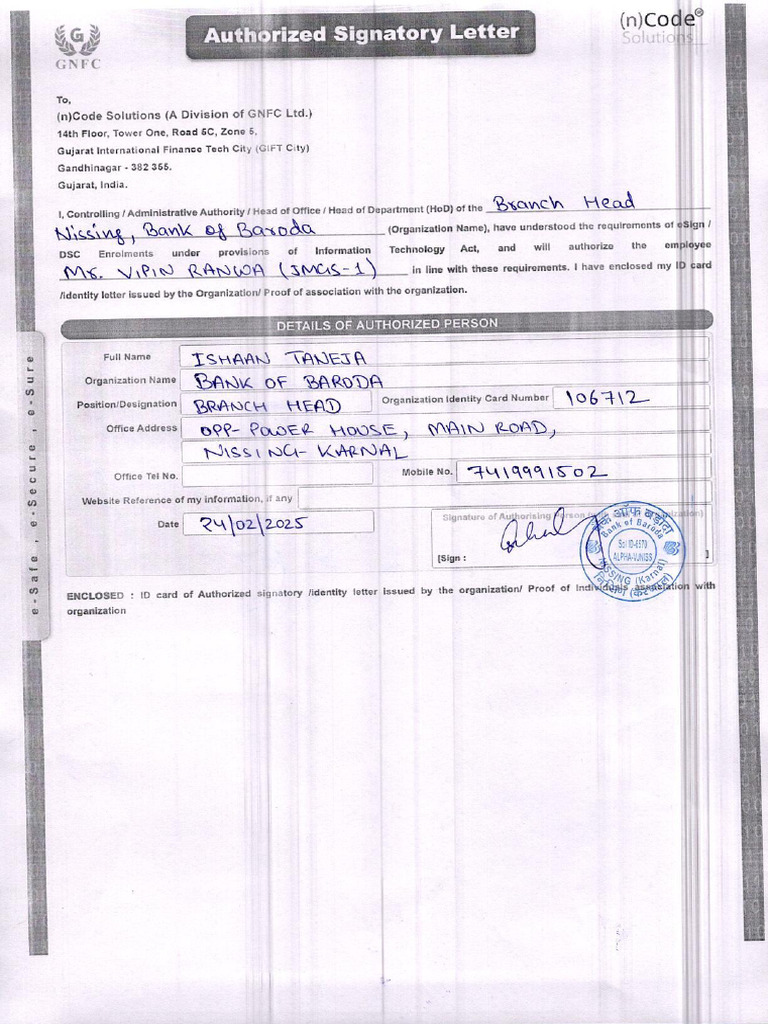 G
GNFC
Authorized Signatory Letter
(n)Code®
Solutions
To,
(n)Code Solutions (A Division of GNFC Ltd.)
14th Floor, Tower One, Road 5C, Zone 5,
Gujarat International Finance Tech City (GIFT City)
Gandhinagar - 382 355.
Gujarat, India.
I, Controlling / Administrative Authority / Head of Office / Head of Department (HoD) of the Branch Head
Nissing, Bank of Baroda (Organization Name), have understood the requirements of eSign /
DSC Enrolments under provisions of Information Technology Act, and will authorize the employee
Mr. VIPIN RANWA (JMGS-1) in line with these requirements. I have enclosed my ID card
/identity letter issued by the Organization/ Proof of association with the organization.
DETAILS OF AUTHORIZED PERSON
Full Name ISHAAN TANEJA
Organization Name BANK OF BARODA
Position/Designation BRANCH HEAD Organization Identity Card Number 106712
Office Address OPP- POWER HOUSE, MAIN ROAD,
NISSING- KARNAL
Office Tel No. Mobile No. 7419991502
Website Reference of my information, if any
Date 24/02/2025
Signature of Authorising Person
[Sign : ]
बैंक ऑफ़ बड़ौदा
Bank of Baroda
Sol ID-6970
ALPHA-VJNISS
NISSING (Karnal)
ENCLOSED : ID card of Authorized signatory /identity letter issued by the organization/ Proof of Individuals association with
organization
e-Safe , e-Secure , e-Sure